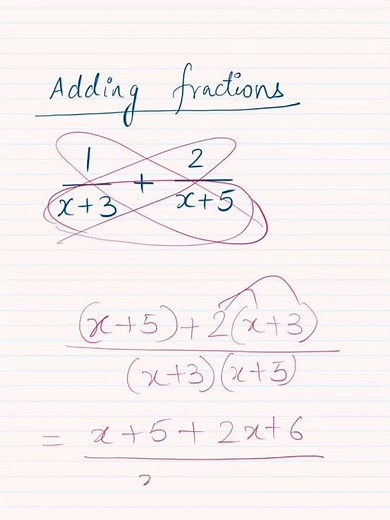 Adding fractions
1/(x+3) + 2/(x+5)
(x+5)+2(x+3)
(x+3)(x+5)
= x+5+2x+6